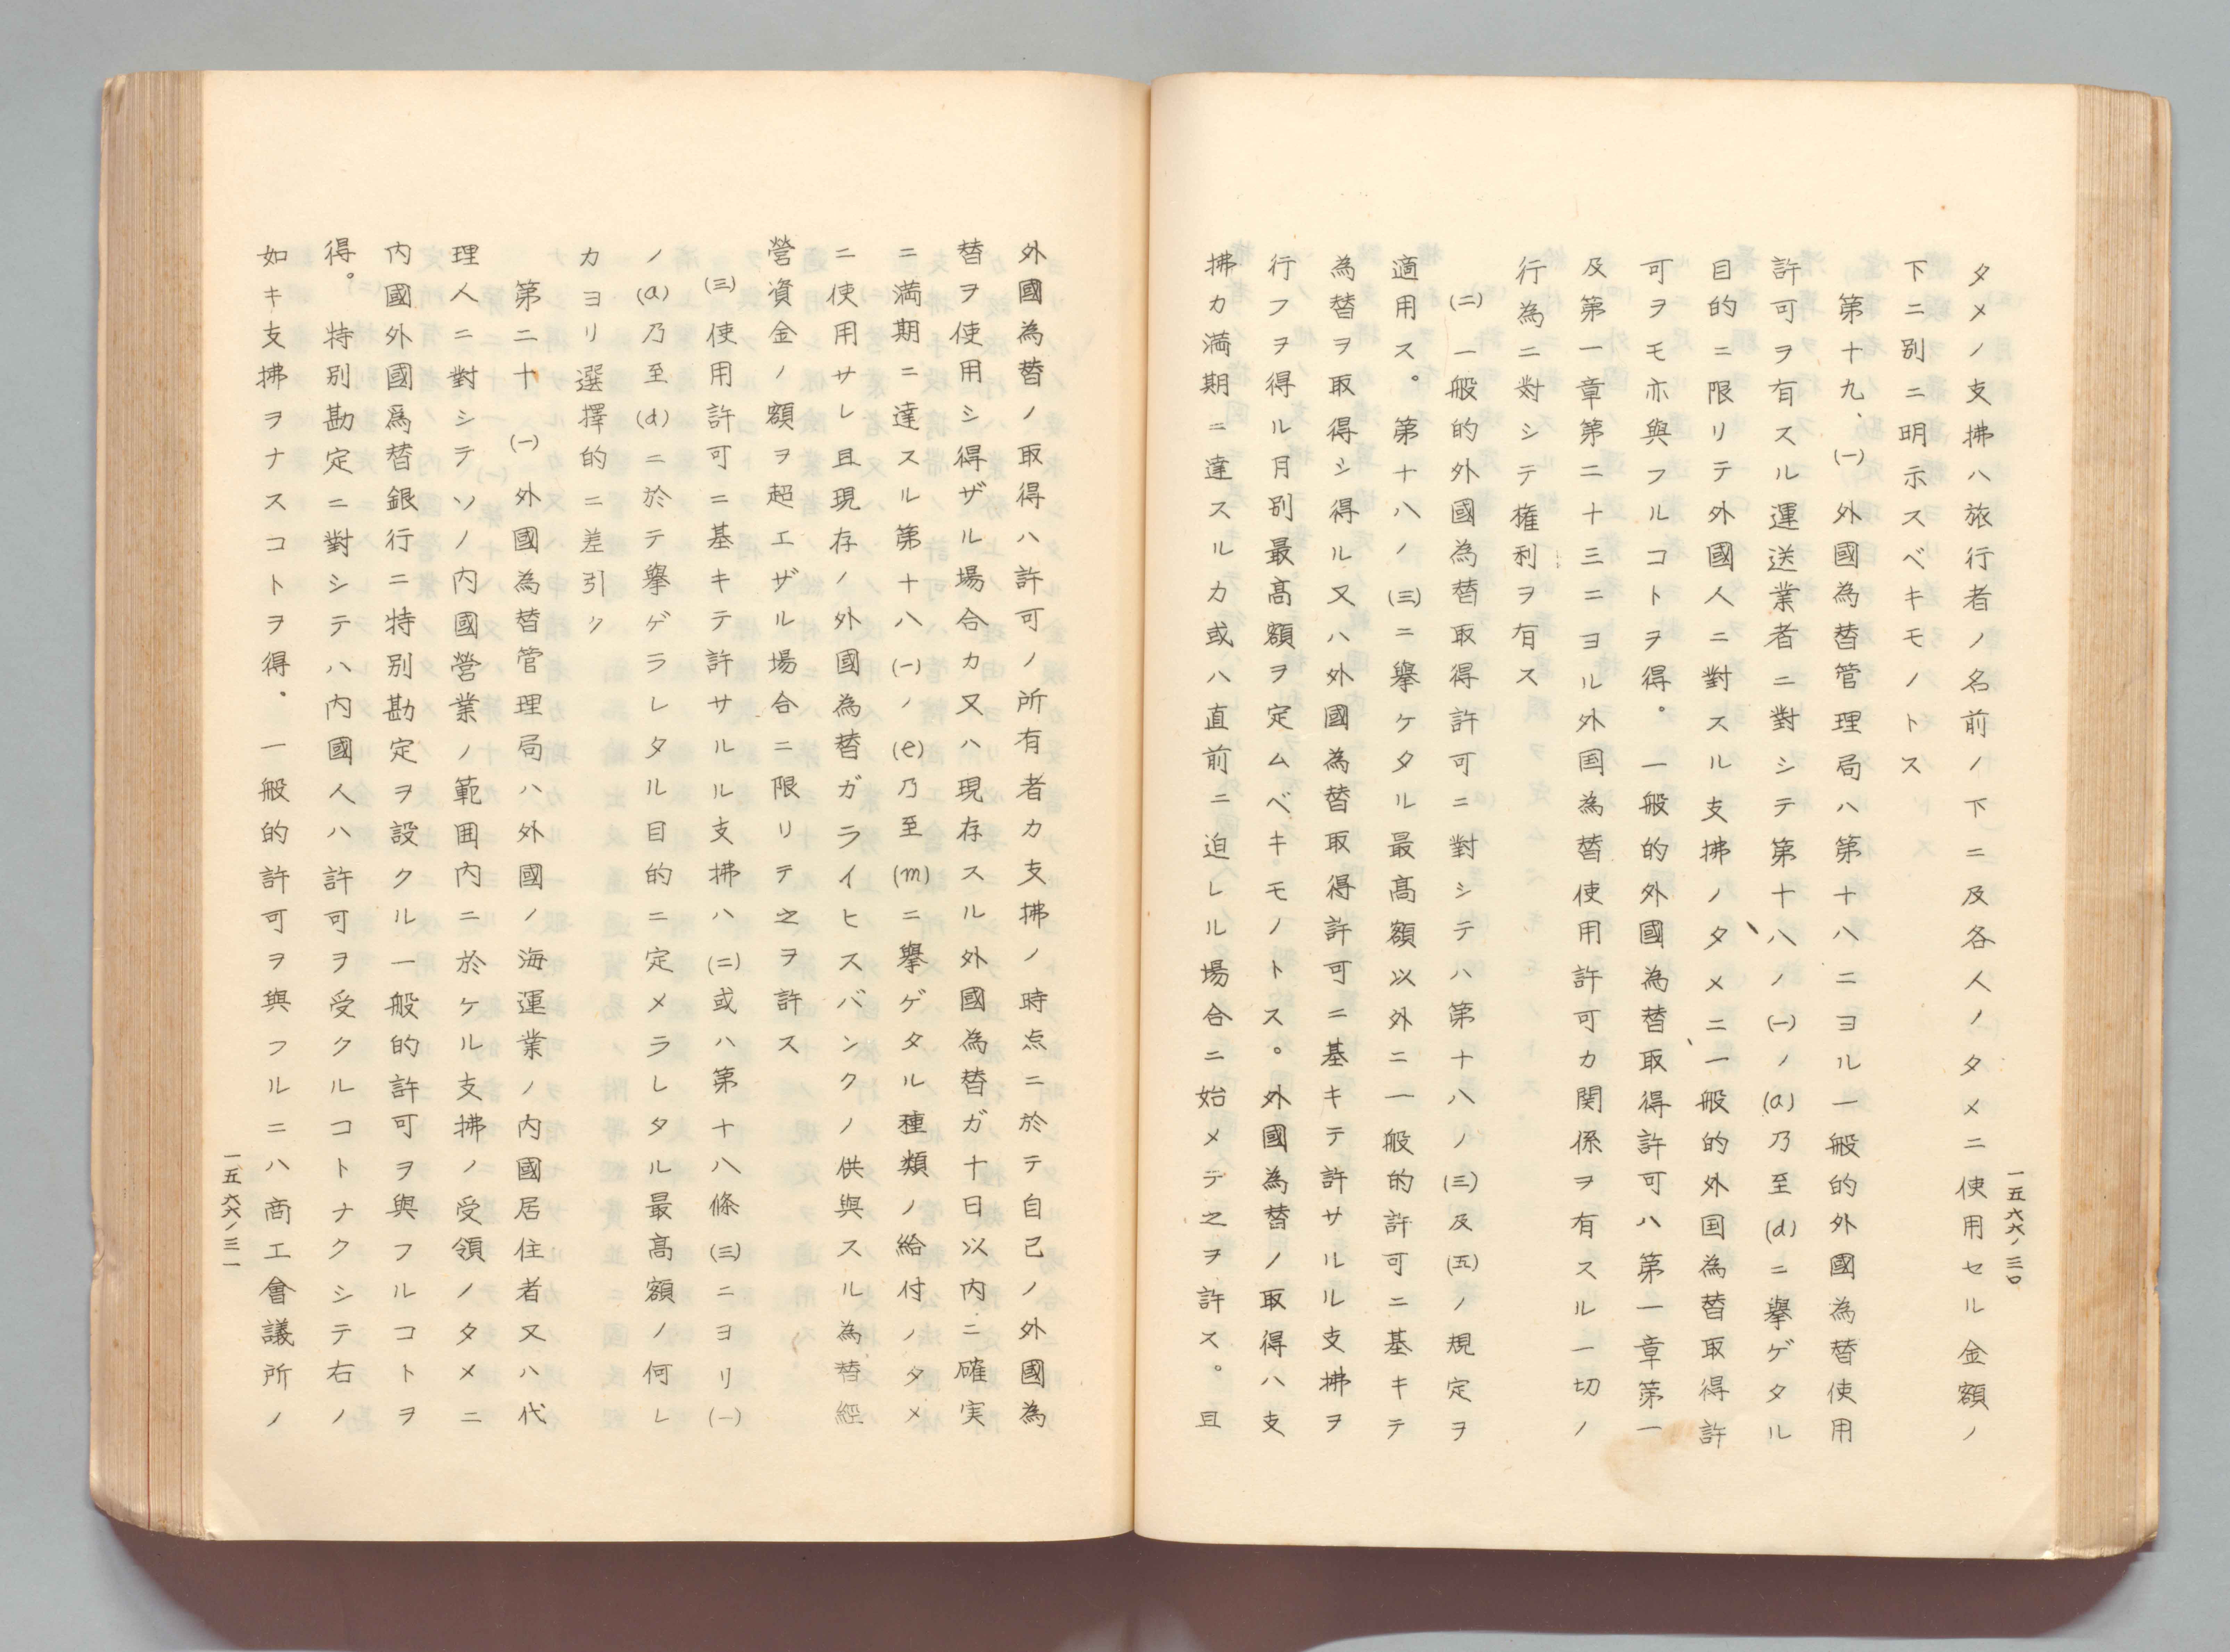 一五六六ノ三〇
タメノ支拂ハ旅行者ノ名前ノ下ニ及各人ノタメニ使用セル金額ノ
下ニ別ニ明示スベキモノトス
第十九、(一)外國為替管理局ハ第十八ニヨル一般的外國為替使用
許可ヲ有スル運送業者ニ對シテ第十八ノ(一)ノ(a)乃至(d)ニ擧ゲタル
目的ニ限リテ外國人ニ對スル支拂ノタメニ一般的外国為替取得許
可ヲモ亦與フルコトヲ得。一般的外國為替取得許可ハ第一章第一
及第一章第二十三ニヨル外国為替使用許可カ関係ヲ有スル一切ノ
行為ニ対シテ権利ヲ有ス
(二)一般的外國為替取得許可ニ對シテハ第十八ノ(三)及(五)ノ規定ヲ
適用ス。第十八ノ(三)ニ擧ケタル最髙額以外ニ一般的許可ニ基キテ
為替ヲ取得シ得ル又ハ外國為替取得許可ニ基キテ許サルル支拂ヲ
行フヲ得ル月別最髙額ヲ定ムベキモノトス。外國為替ノ取得ハ支
拂カ満期ニ達スルカ或ハ直前ニ迫レル場合ニ始メテ之ヲ許ス。且
外國為替ノ取得ハ許可ノ所有者カ支拂ノ時点ニ於テ自己ノ外國為
替ヲ使用シ得ザル場合カ又ハ現存スル外國為替ガ十日以内ニ確実
ニ満期ニ達スル第十八(一)ノ(e)乃至(m)ニ擧ゲタル種類ノ給付ノタメ
ニ使用サレ且現存ノ外國為替ガライヒスバンクノ供與スル為替經
營資金ノ額ヲ超エザル場合ニ限リテ之ヲ許ス
(三)使用許可ニ基キテ許サルル支拂ハ(二)或ハ第十八條(三)ニヨリ(一)
ノ(a)乃至(d)ニ於テ擧ゲラレタル目的ニ定メラレタル最高額ノ何レ
カヨリ選擇的ニ差引ク
第二十(一)外國為替管理局ハ外國ノ海運業ノ内國居住者又ハ代
理人ニ對シテソノ内國營業ノ範囲内ニ於ケル支拂ノ受領ノタメニ
内國外國爲替銀行ニ特別勘定ヲ設クル一般的許可ヲ與フルコトヲ
得。特別勘定ニ對シテハ内國人ハ許可ヲ受クルコトナクシテ右ノ
如キ支拂ヲナスコトヲ得．一般的許可ヲ與フルニハ商工會議所ノ
一五六六ノ三一